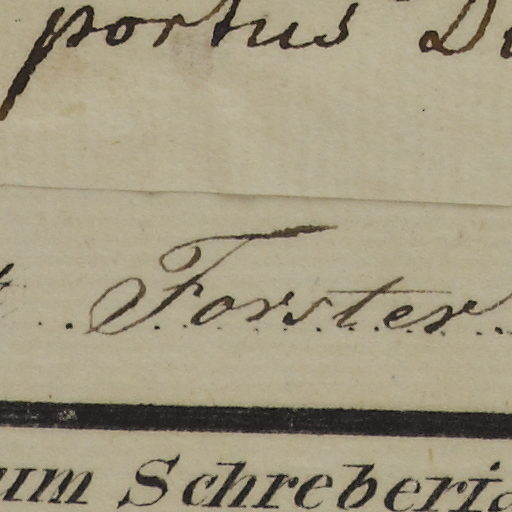 portus
Forster
Schreberia